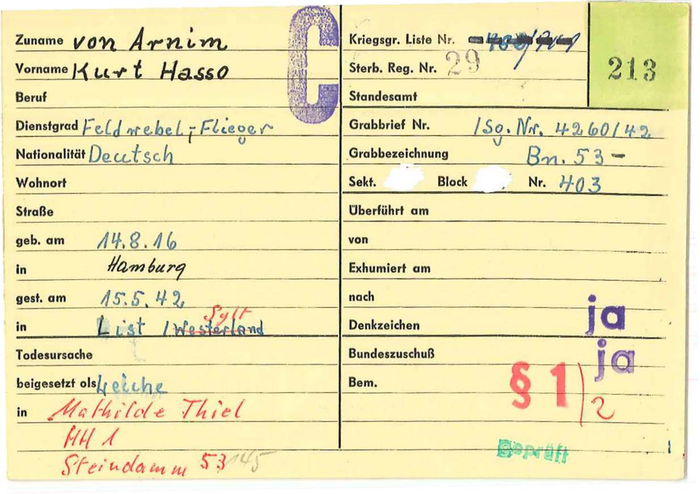 Zuname von Arnim
Vorname Kurt Hasso
Beruf
Dienstgrad Feldwebel, Flieger
Nationalität Deutsch
Wohnort
Straße
geb. am 14.8.16
in Hamburg
gest. am 15.5.42
in List / Westerland Sylt
Todesursache
beigesetzt als Leiche
in Mathilde Thiel
HH 1
Steindamm 53 145
C
Kriegsgr. Liste Nr.
Sterb. Reg. Nr. 29
213
Standesamt
Grabbrief Nr. /Sg. Nr. 4260/42
Grabbezeichnung Bn. 53 -
Sekt. Block Nr. 403
Überführt am
von
Exhumiert am
nach
Denkzeichen ja
Bundeszuschuß ja
Bem. § 1/2
geprüft